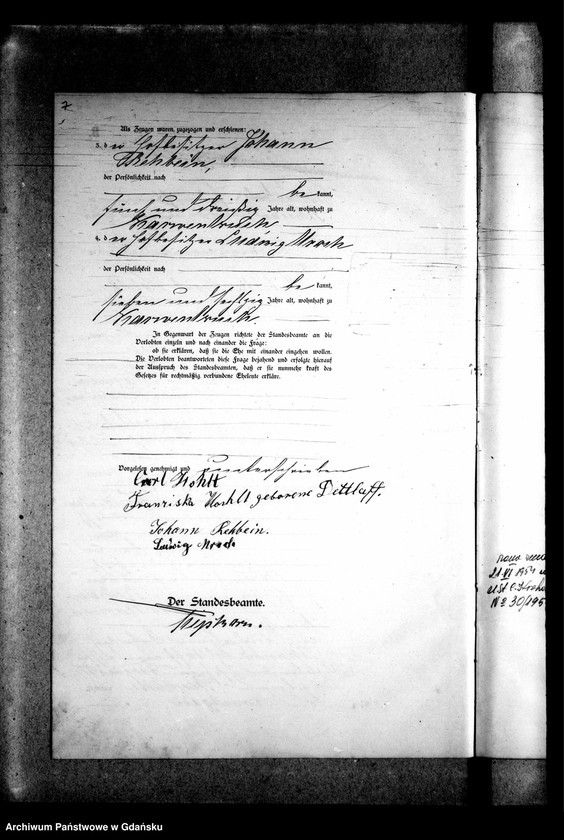 7
Als Zeugen waren zugezogen und erschienen:
3. der Hofbesitzer Johann
Rehbein,
der Persönlichkeit nach
be kannt,
fünf und dreißig Jahre alt, wohnhaft zu
Karwenbruch
4. der Hofbesitzer Ludwig Mroch
der Persönlichkeit nach
be kannt,
sieben und sechzig Jahre alt, wohnhaft zu
Karwenbruch.
In Gegenwart der Zeugen richtete der Standesbeamte an die
Verlobten einzeln und nach einander die Frage:
ob sie erklären, daß sie die Ehe mit einander eingehen wollen.
Die Verlobten beantworteten diese Frage bejahend und erfolgte hierauf
der Ausspruch des Standesbeamten, daß er sie nunmehr kraft des
Gesetzes für rechtmäßig verbundene Eheleute erkläre.
Vorgelesen, genehmigt und unterschrieben
Carl Kohlt
Franziska geborene Dettlaff.
Johann Rehbein.
Ludwig Mroch
Der Standesbeamte.
21 VI 195
USC
№ 30/195
Archiwum Państwowe w Gdańsku